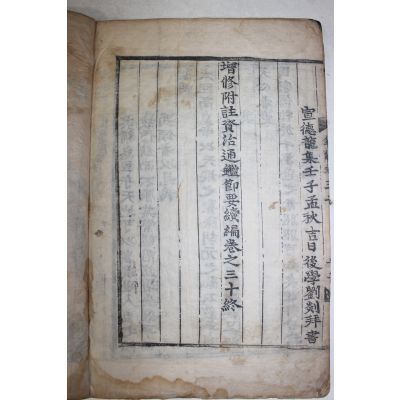 宣德龍集壬子孟秋吉日後學劉剡拜書
增修附註資治通鑑節要續編卷之三十終